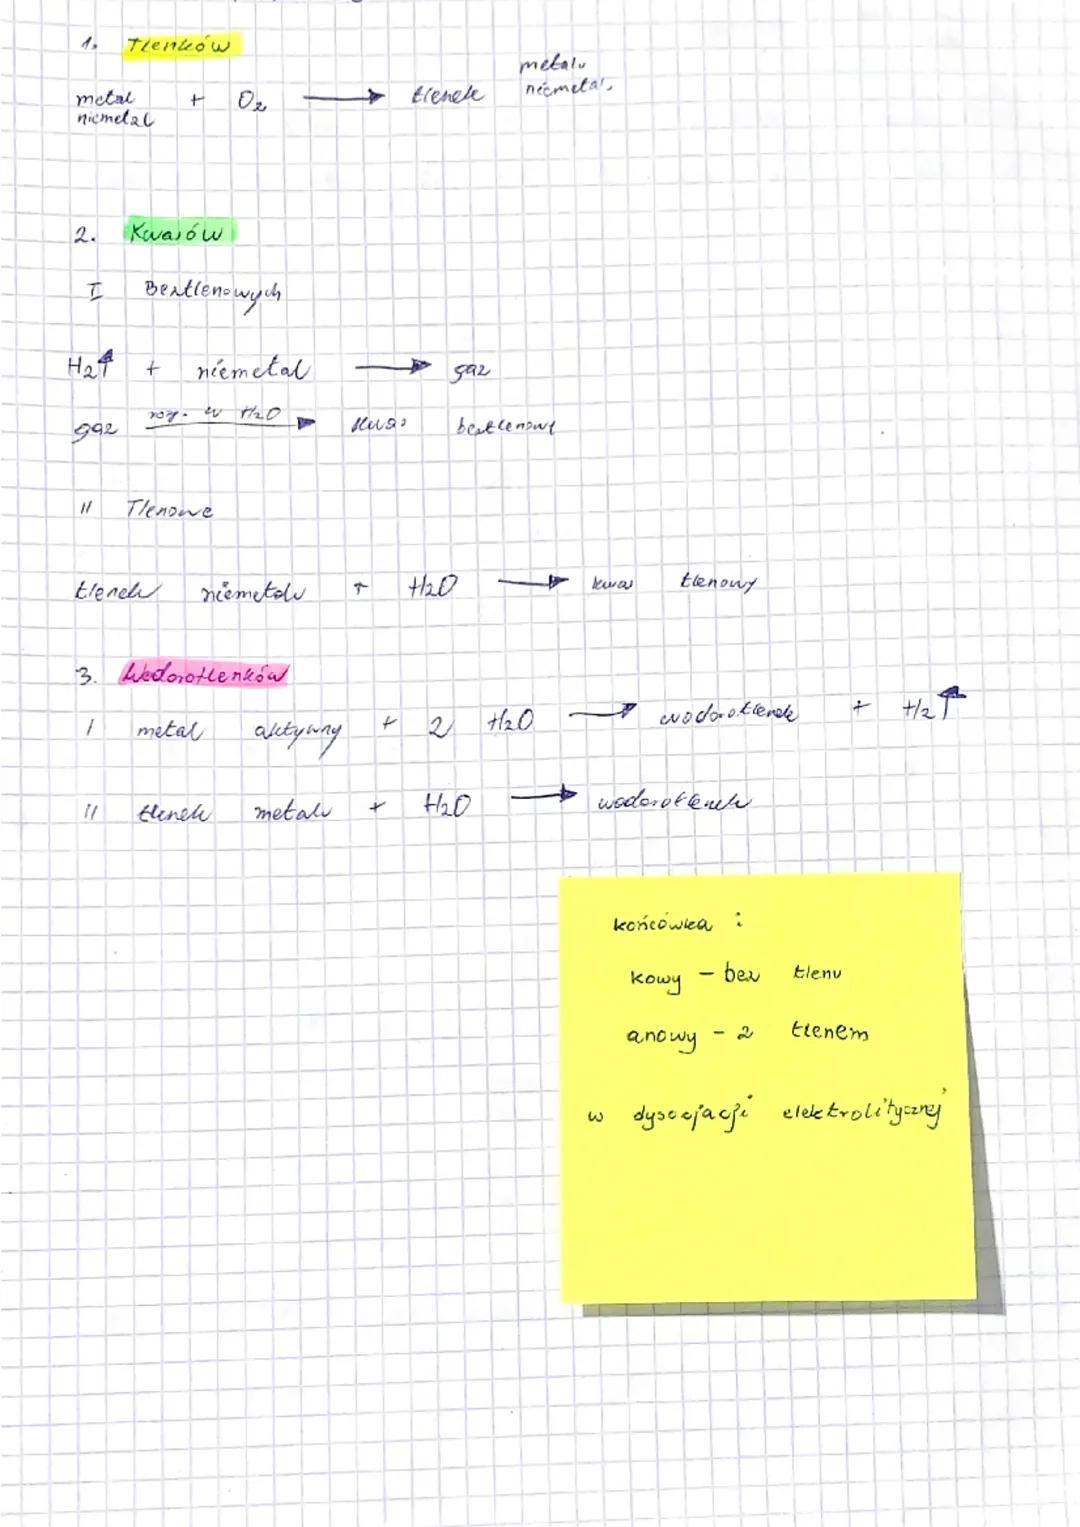 1. Tlenków
metalu
metal + O2 → tlenek niemetalu
niemetal
2. Kwasów
I Beztlenowych
H2↑ + niemetal → gaz
gaz roz. w H2O → kwas beztlenowy
II Tlenowe
tlenek niemetalu + H2O → kwas tlenowy
3. Wodorotlenków
I metal aktywny + 2 H2O → wodorotlenek + H2↑
II tlenek metalu + H2O → wodorotlenek
końcówka :
kowy - bez tlenu
anowy - z tlenem
w dysocjacji elektrolitycznej